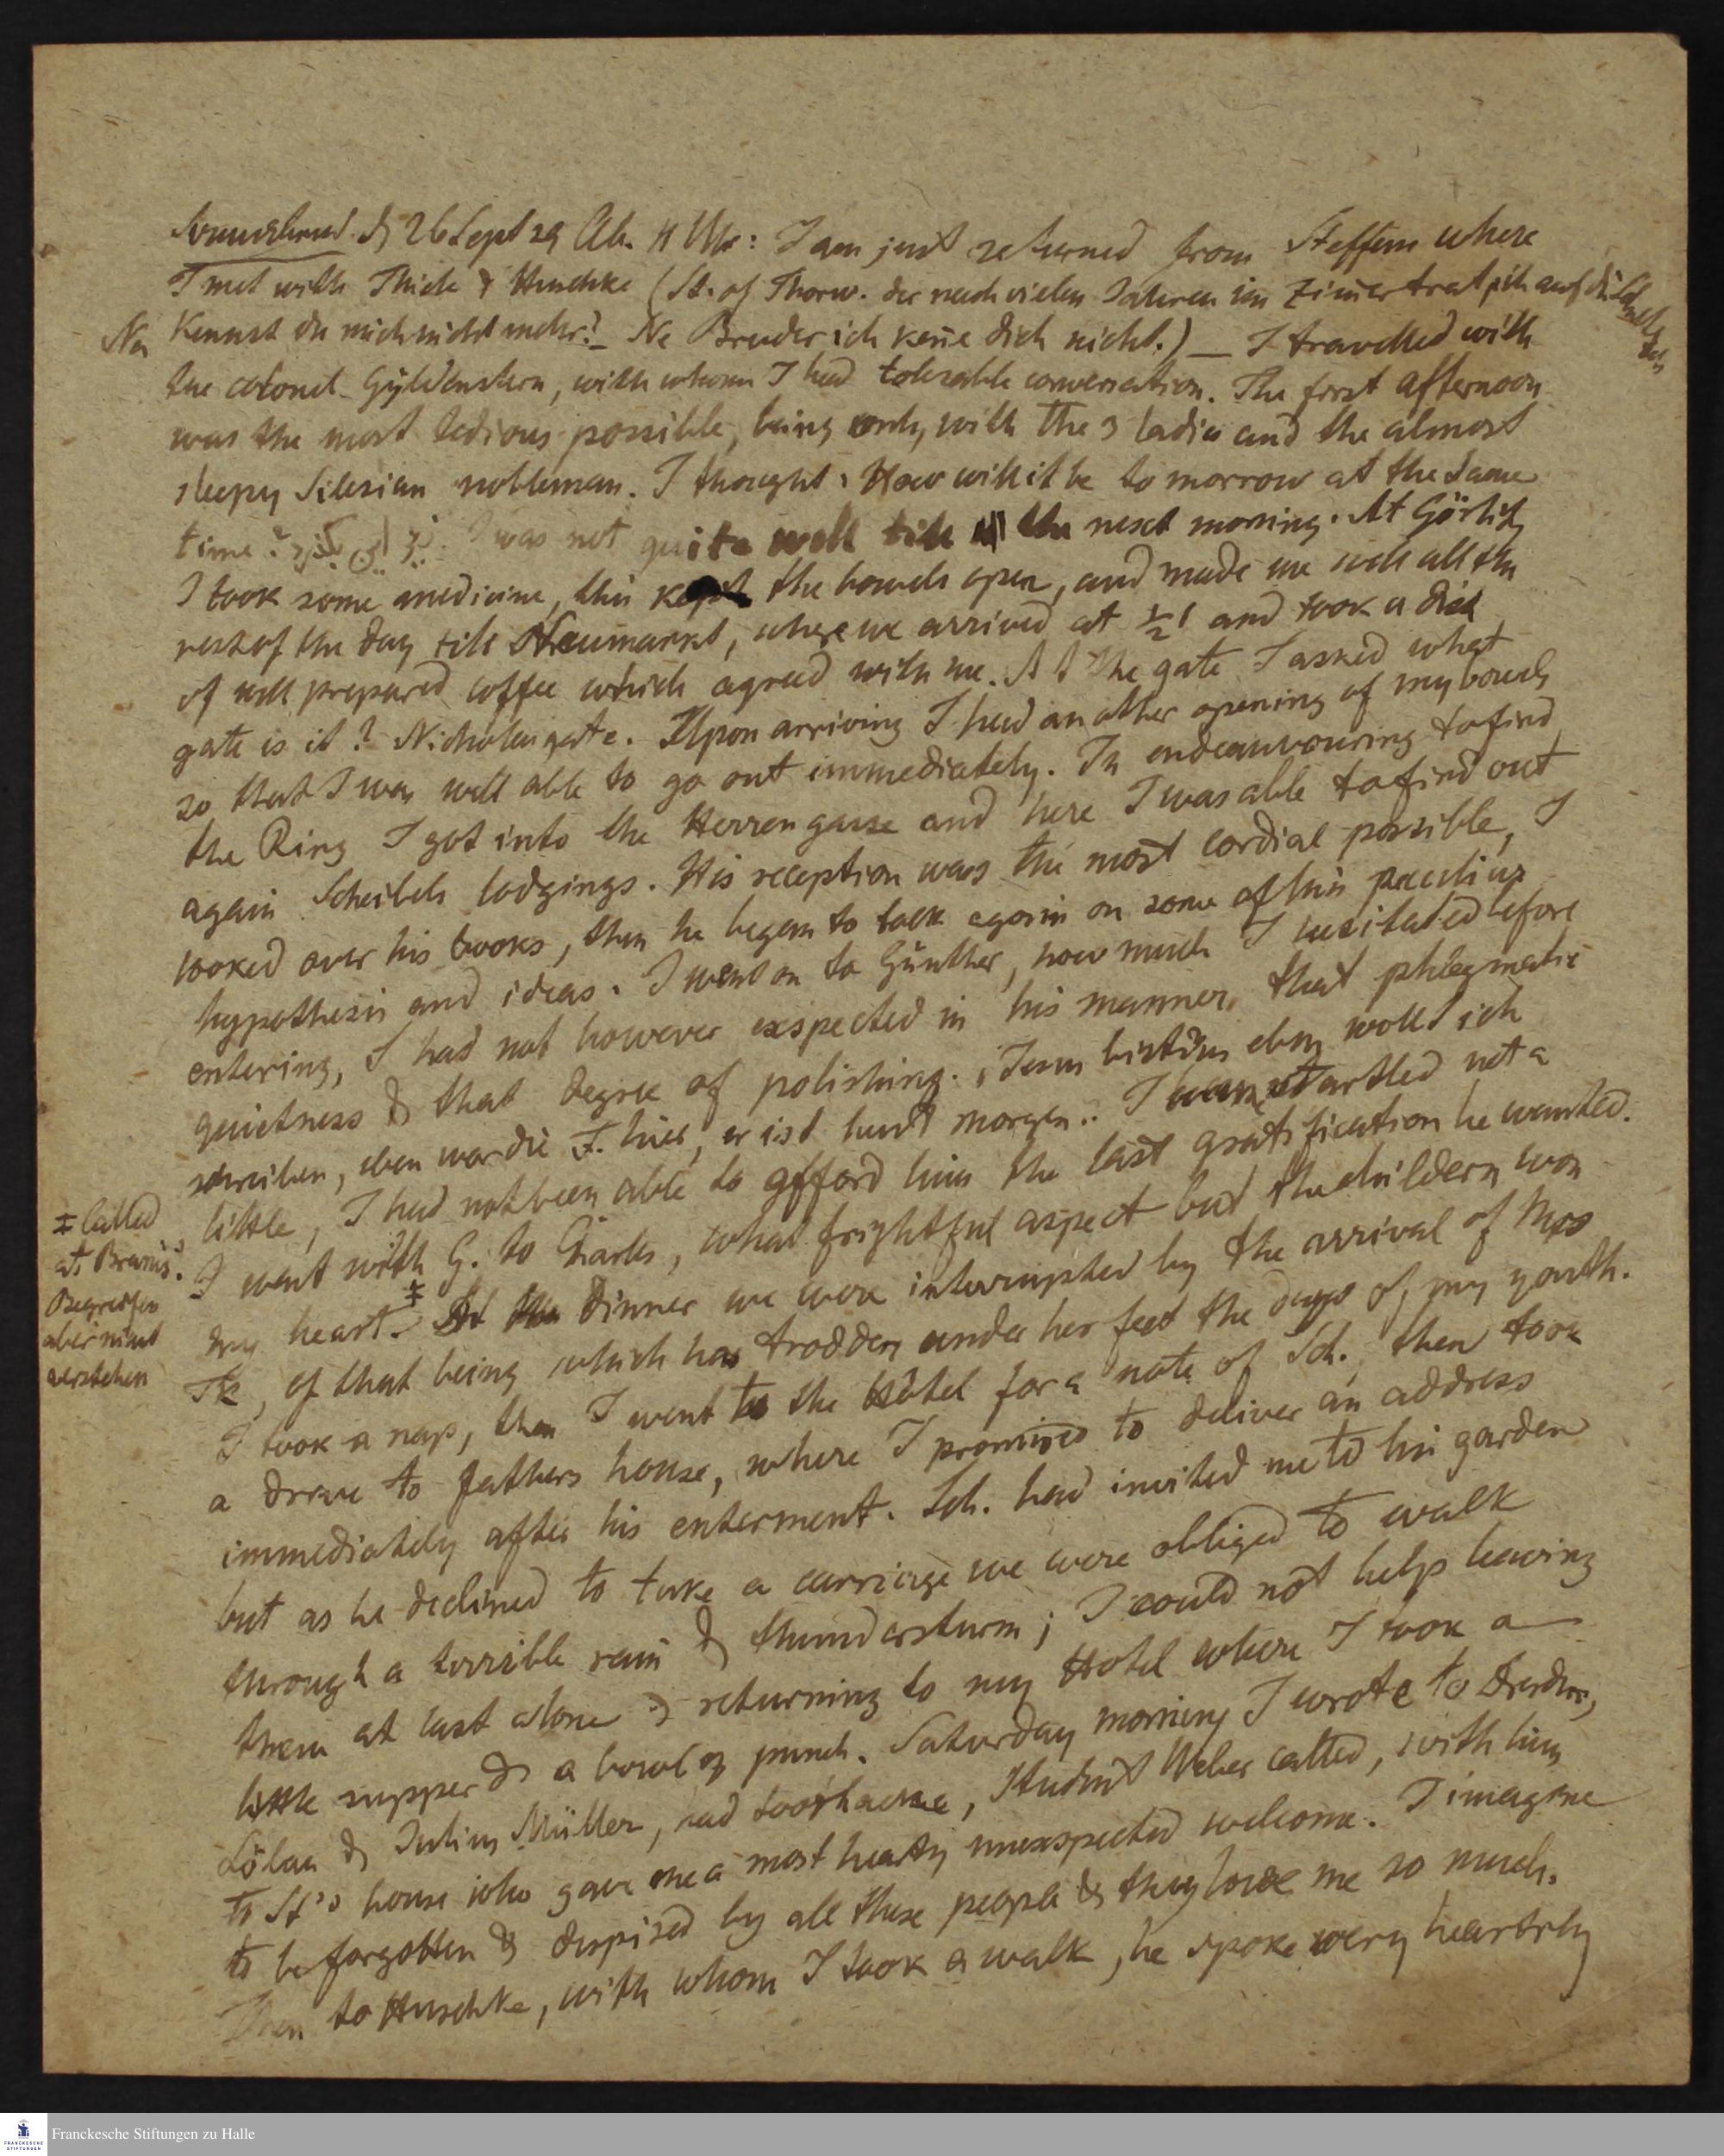 Sonnabend d 26 Sept 29 Ab. 11 Uhr: I am just returned from Steffens where
I met with Thiele & Huschke (St. of Thorw. der nach vielen Jahren ins Zimer trat sich auf die
Na Kennst du mich nicht mehr? – Ne Bruder ich kene dich nicht.) – I travelled with
the colonel Gyldenstern, with whom I had tolerable conversation. The first afternoon
was the most tedious possible, being only with the 3 ladies and the almost
sleepy Silesian nobleman. I thought: How will it be to morrow at the same
time? I was not quite well till the next morning. At Görlitz
I took some medicine, this kept the bowels open, and made me well all the
rest of the day till Neumarkt, where we arrived at ½1 and took a dish
of well prepared coffee which agreed with me. At the gate I asked what
gate is it? Nicholaigate. Upon arriving I had another opening of my bowels
so that I was well able to go out immediately. In endeanvouring to find
the Ring I got into the Herrengasse and here I was able to find out
again Scheibels lodgings. His reception was the most cordial possible, I
looked over his books, then he began to talk again on some of his peculiar
hypothesis and ideas. I went on to Günther, how much I hesitated before
entering, I had not however exspected in his manner, that phlegmatic
quietness & that degree of polishing. bist du eben wollt ich
schreiben, eben war die F. hier, er ist heut morgen.. I was startled not a
little, I had not been able to afford him the last gratification he wanted.
I went with G. to Charles, what frightful aspect but the childern won
my heart. ‡ At dinner we were interrupted by the arrival of Mrs
Tk, of that being which has trodden under her feet the days of my youth.
‡ Called
at Braniss'.
Begreifen
aber nicht
verstehen
I took a nap, then I went to the Hôtel for a note of Sch. then took
a drive to fathers house, where I promised to deliver an address
immediately after his enterment. Sch. had invited me to his garden
but as he declined to take a carriage we were obliged to walk
through a terrible rain & thundersturm; I could not help leaving
them at last alone & returning to my Hotel where I took a
little supper & a bowl of punch. Saturday morning I wrote to Dresden,
Löbau & Julius Müller, had toothache, Student Weber called, with him
to St's house who gave me a most hearty unexspected welcome. I imagine
to be forgotten & despised by all these people & they love me so much.
Then to Huschke, with whom I took a walk, he spoke very heartily
Franckesche Stiftungen zu Halle
FRANCKESCHE
STIFTUNGEN